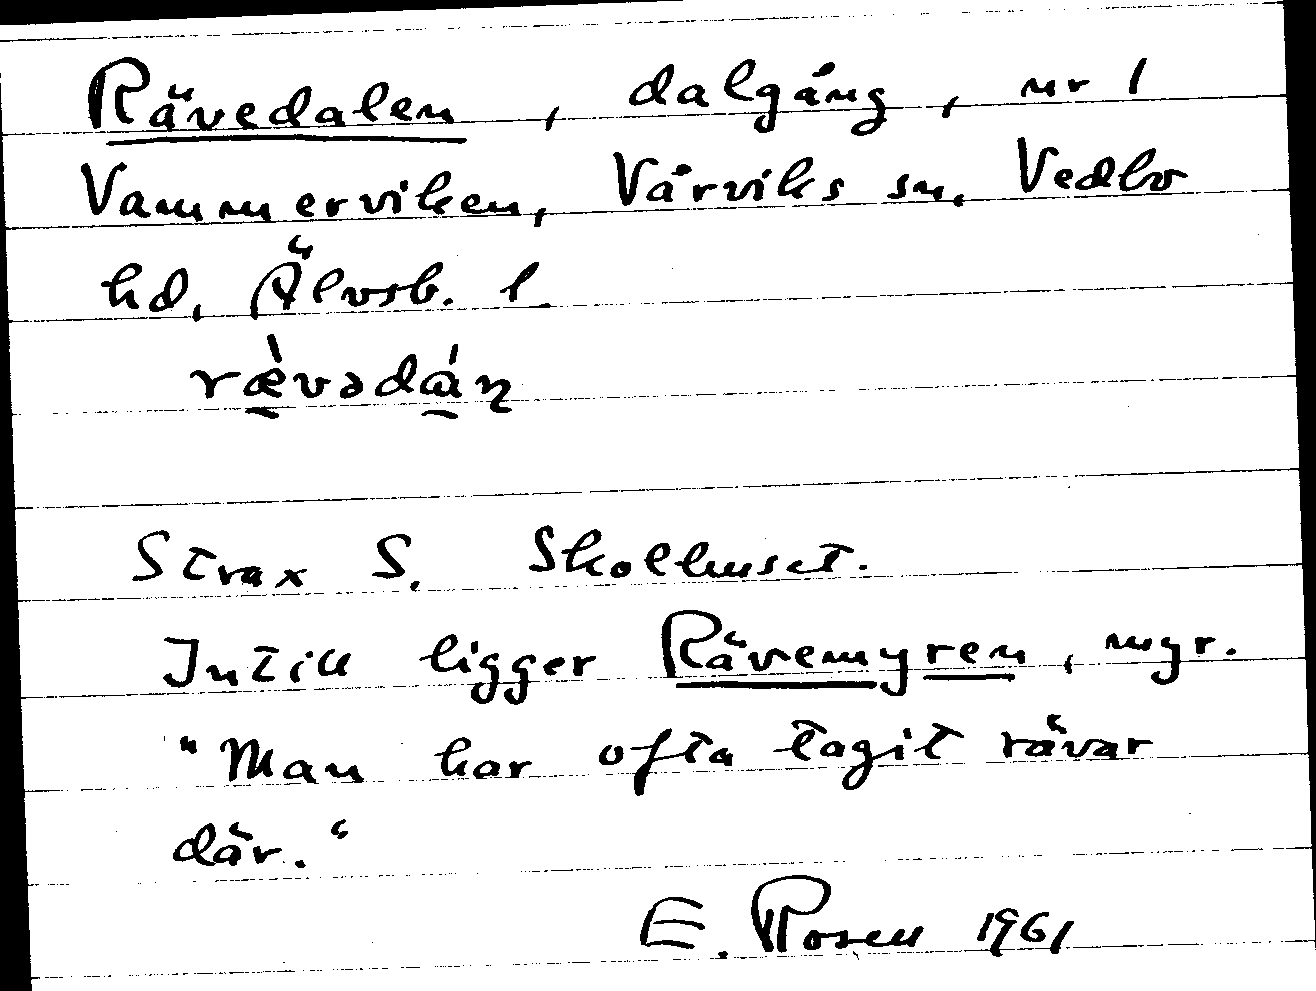 Rävedalen, dalgång, nr 1
Vammerviken, Vårviks sn. Vedbo
hd, Älvsb. l.
ræ̀vədán
Strax S. Skolhuset.
Intill ligger Rävemyren, myr.
"Man har ofta tagit rävar
där."
E. Rosen 1961